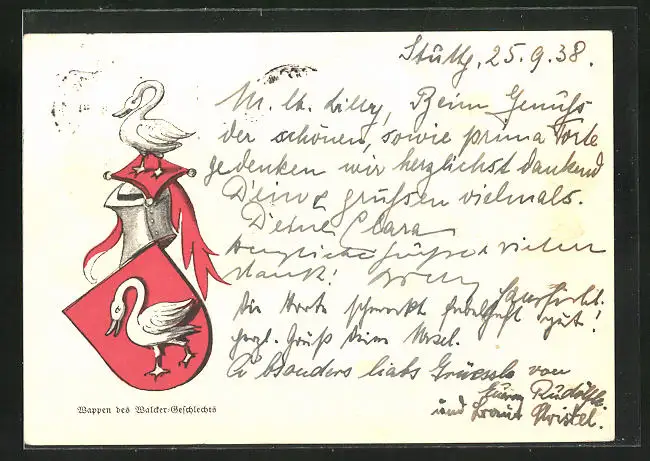 Stuttg. 25.9.38.
M. lb. Lilly, Beim Genuss
der schönen, sowie prima Torte
gedenken wir herzlichst dankend
Deine & grüssen vielmals.
Deine Clara
Herzliche Grüsse & vielen
Dank!
Die Torte schmeckt fabelhaft gut!
herzl. Gruß Deine Ursel.
A bsonders liabs Grüessle von
Eurem Rudolf
und Christel.
Wappen des Walcker-Geschlechts